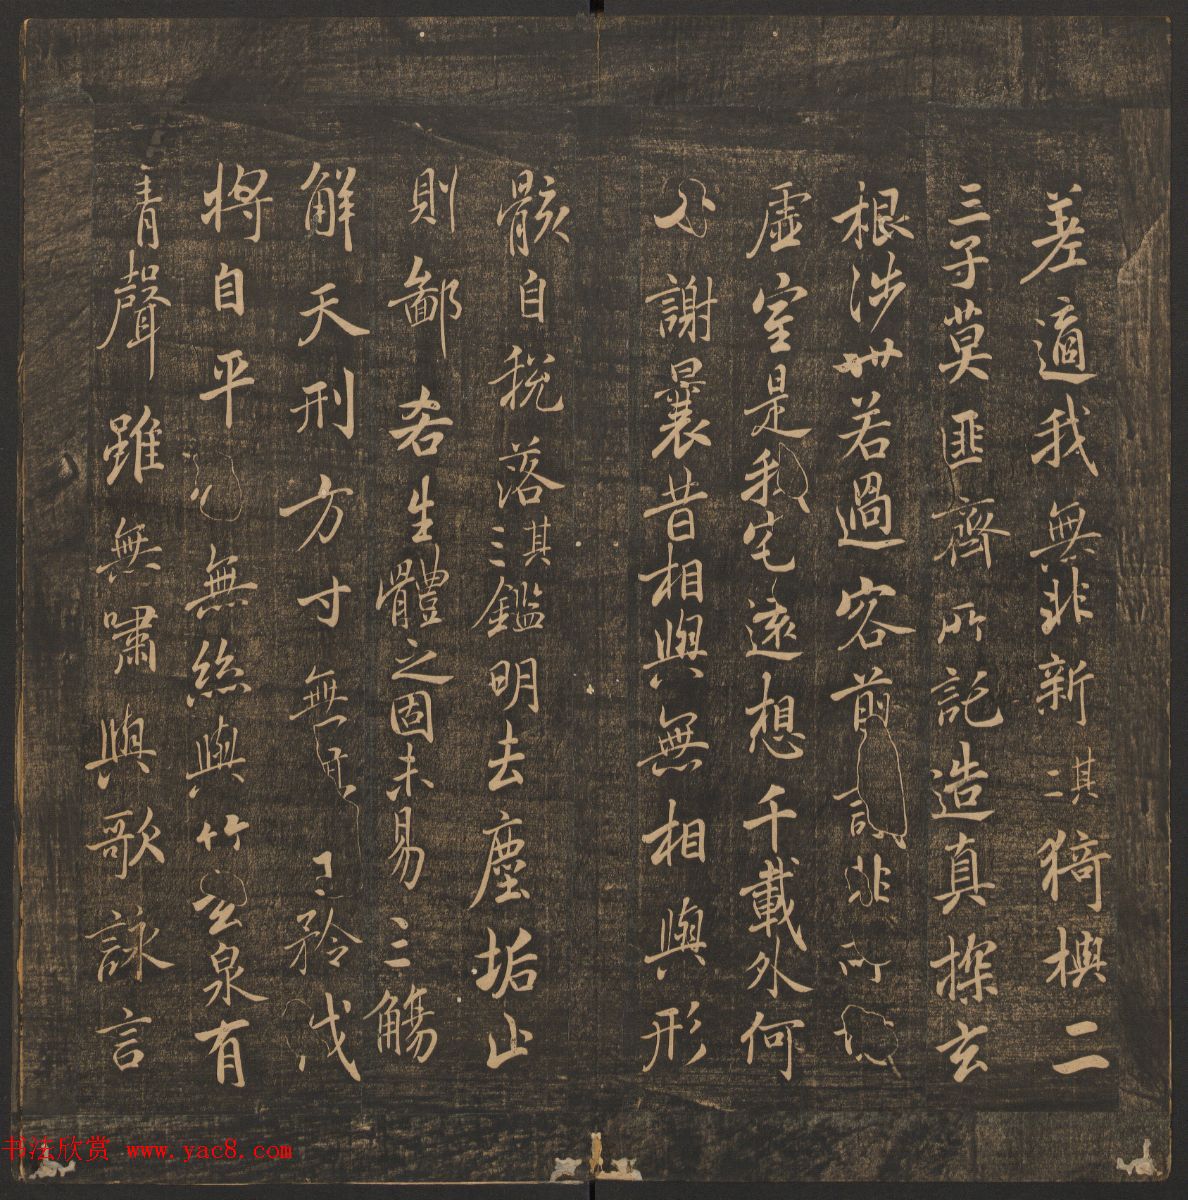 差適我無非新其二猗與二
三子莫匪齊所託造真探玄
根涉世若過客前非所
虛室是我宅遠想千載外何
必謝曩昔相與無相與形
骸自稅落其三鑑明去塵垢止
則鄙吝生體之固未易三觴
解天刑方寸無矜伐
將自平無絲與竹玄泉有
清聲雖無嘯與歌詠言
书法欣赏 www.yac8.com